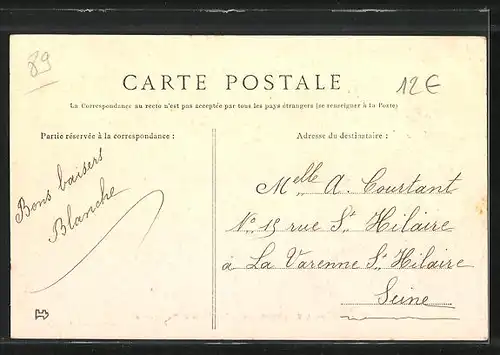 89
CARTE POSTALE
12€
La Correspondance au recto n'est pas acceptée par tous les pays étrangers (se renseigner à la Poste)
Partie réservée à la correspondance :
Adresse du destinataire :
Bons baisers
Blanche
Melle A. Courtant
No. 15 rue St Hilaire
à La Varenne St. Hilaire
Seine